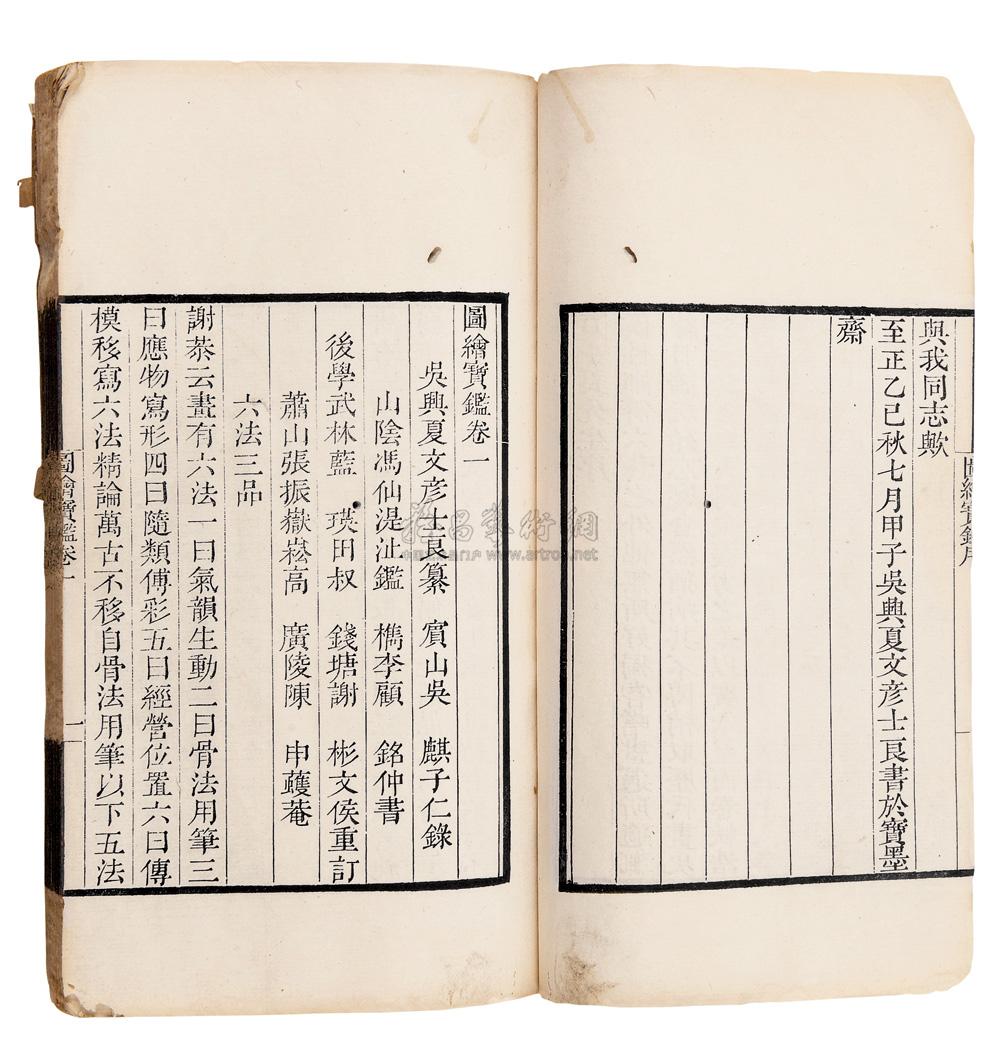 與我同志歟
至正乙巳秋七月甲子吳興夏文彥士良書於寶墨
齋
圖繪寶鑑卷一
吳興夏文彥士良纂　賓山吳　麒子仁錄
山陰馮仙湜沚鑑　檇李顧　銘仲書
後學武林藍　瑛田叔　錢塘謝　彬文侯重訂
蕭山張振嶽崧高　廣陵陳　申蘧菴
六法三品
謝恭云畫有六法一曰氣韻生動二曰骨法用筆三
曰應物寫形四曰隨類傅彩五曰經營位置六曰傳
模移寫六法精論萬古不移自骨法用筆以下五法
圖繪寶鑑卷一
一
雅昌藝術網
www.artron.net